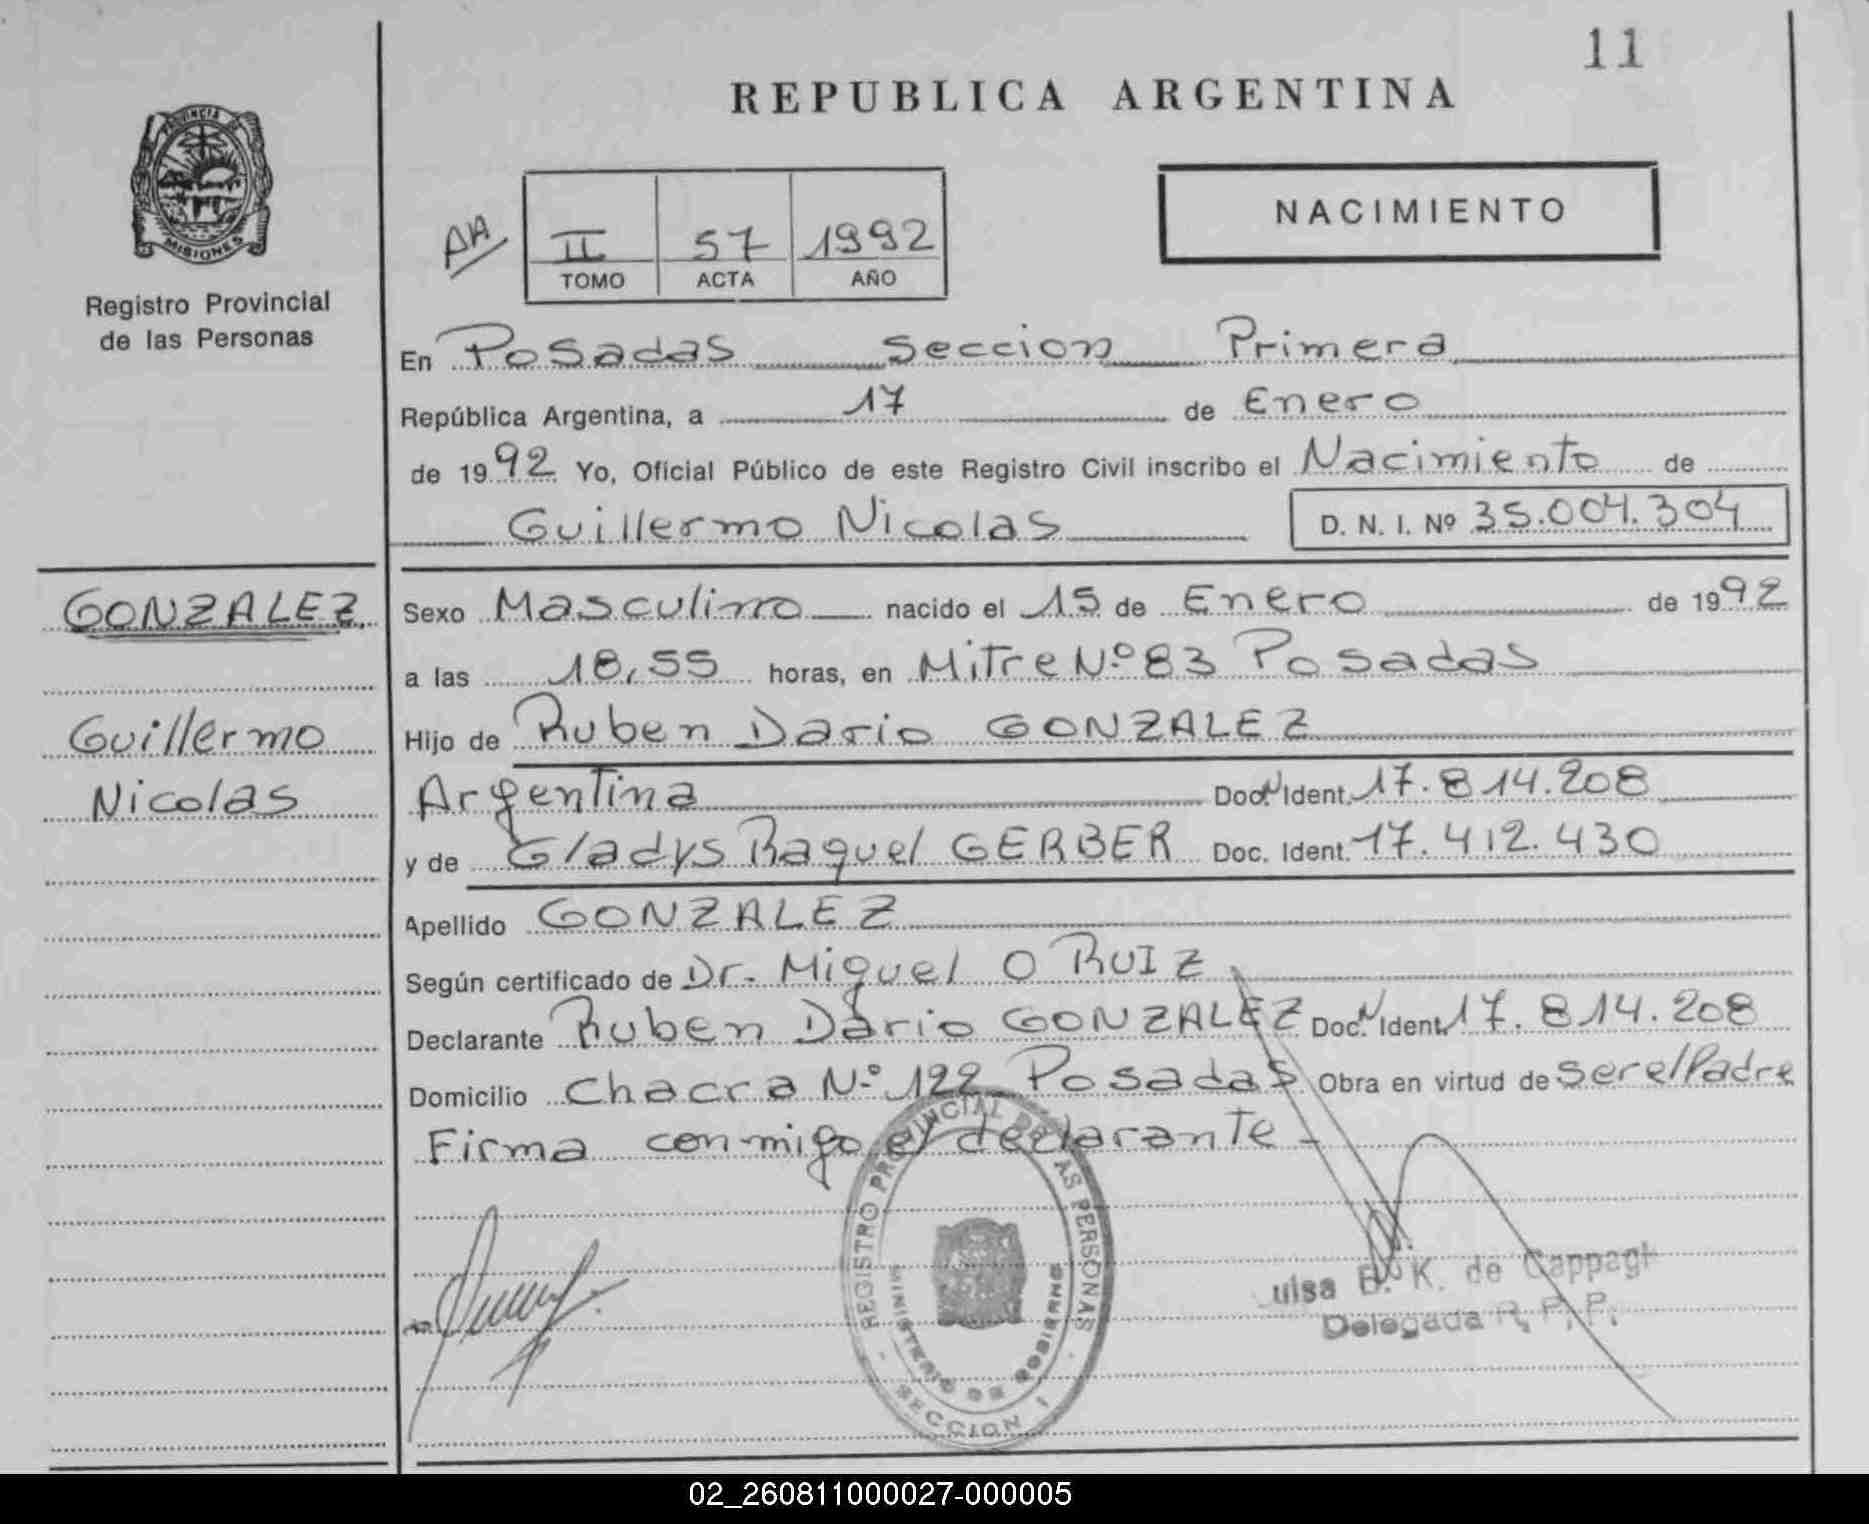 11
REPUBLICA ARGENTINA
PROVINCIA DE
MISIONES
Registro Provincial
de las Personas
AA
II 57 1992
TOMO ACTA AÑO
NACIMIENTO
En Posadas Seccion Primera
República Argentina, a 17 de Enero
de 1992 Yo, Oficial Público de este Registro Civil inscribo el Nacimiento de
Guillermo Nicolas D. N. I. Nº 35.004.304
GONZALEZ
Guillermo
Nicolas
Sexo Masculino nacido el 15 de Enero de 1992
a las 18,55 horas, en Mitre Nº 83 Posadas
Hijo de Ruben Dario GONZALEZ
Argentina Doc. N Ident. 17.814.208
y de Gladys Raquel GERBER Doc. Ident. 17.412.430
Apellido GONZALEZ
Según certificado de Dr. Miguel O RUIZ
Declarante Ruben Dario GONZALEZ Doc. N Ident. 17.814.208
Domicilio Chacra Nº 122 Posadas Obra en virtud de ser el Padre
Firma conmigo el declarante -
REGISTRO PROVINCIAL DE LAS PERSONAS
MINISTERIO DE GOBIERNO
- SECCION 1 -
uisa B. K. de Cappagli
Delegada R. P. P.
02_260811000027-000005